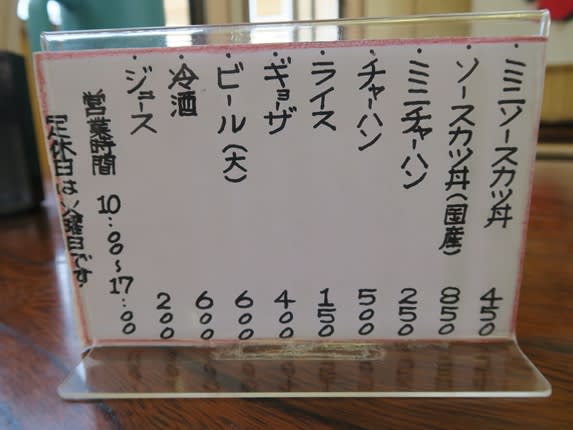 ・ミニソースカツ丼 450
・ソースカツ丼(国産) 850
・ミニチャーハン 250
・チャーハン 500
・ライス 150
・ギョーザ 400
・ビール(大) 600
・冷酒 600
・ジュース 200
営業時間 10:00〜17:00
定休日は火曜日です